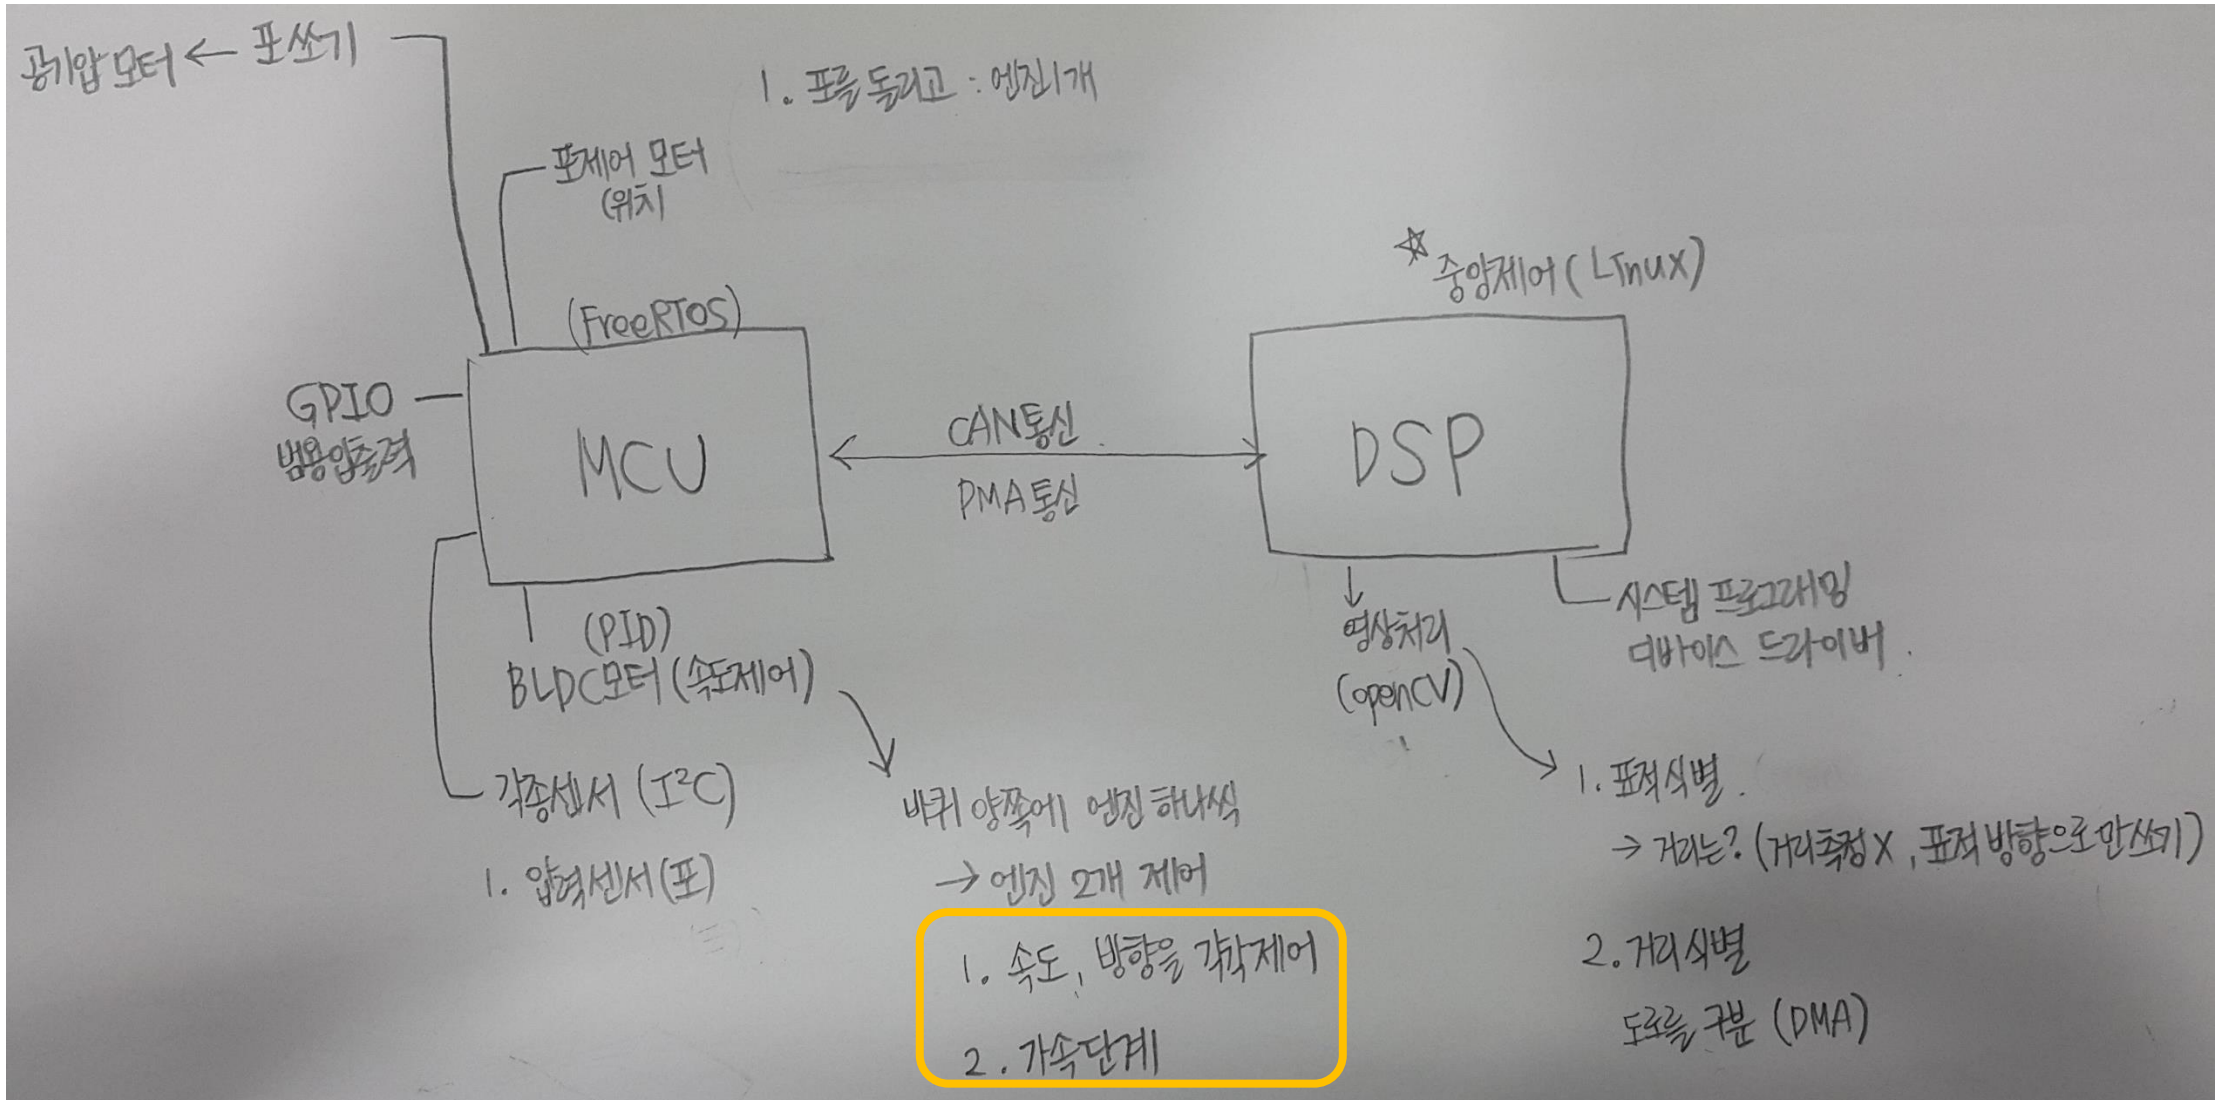 공기압 모터 ← 포쏘기
1. 포를 돌리고 : 엔진1개
포제어 모터
(위치
☆ 중앙제어 (Linux)
(FreeRTOS)
GPIO
범용입출력
MCU
CAN통신
DMA통신
DSP
(PID)
BLDC모터 (속도제어)
각종센서 (I²C)
1. 압력센서(포)
바퀴 양쪽에 엔진 하나씩
→ 엔진 2개 제어
1. 속도, 방향을 각각제어
2. 가속단계
영상처리
(openCV)
시스템 프로그래밍
디바이스 드라이버
1. 표적식별
→ 거리는? (거리측정X, 표적 방향으로만쏘기)
2. 거리식별
도로를 구분 (DMA)